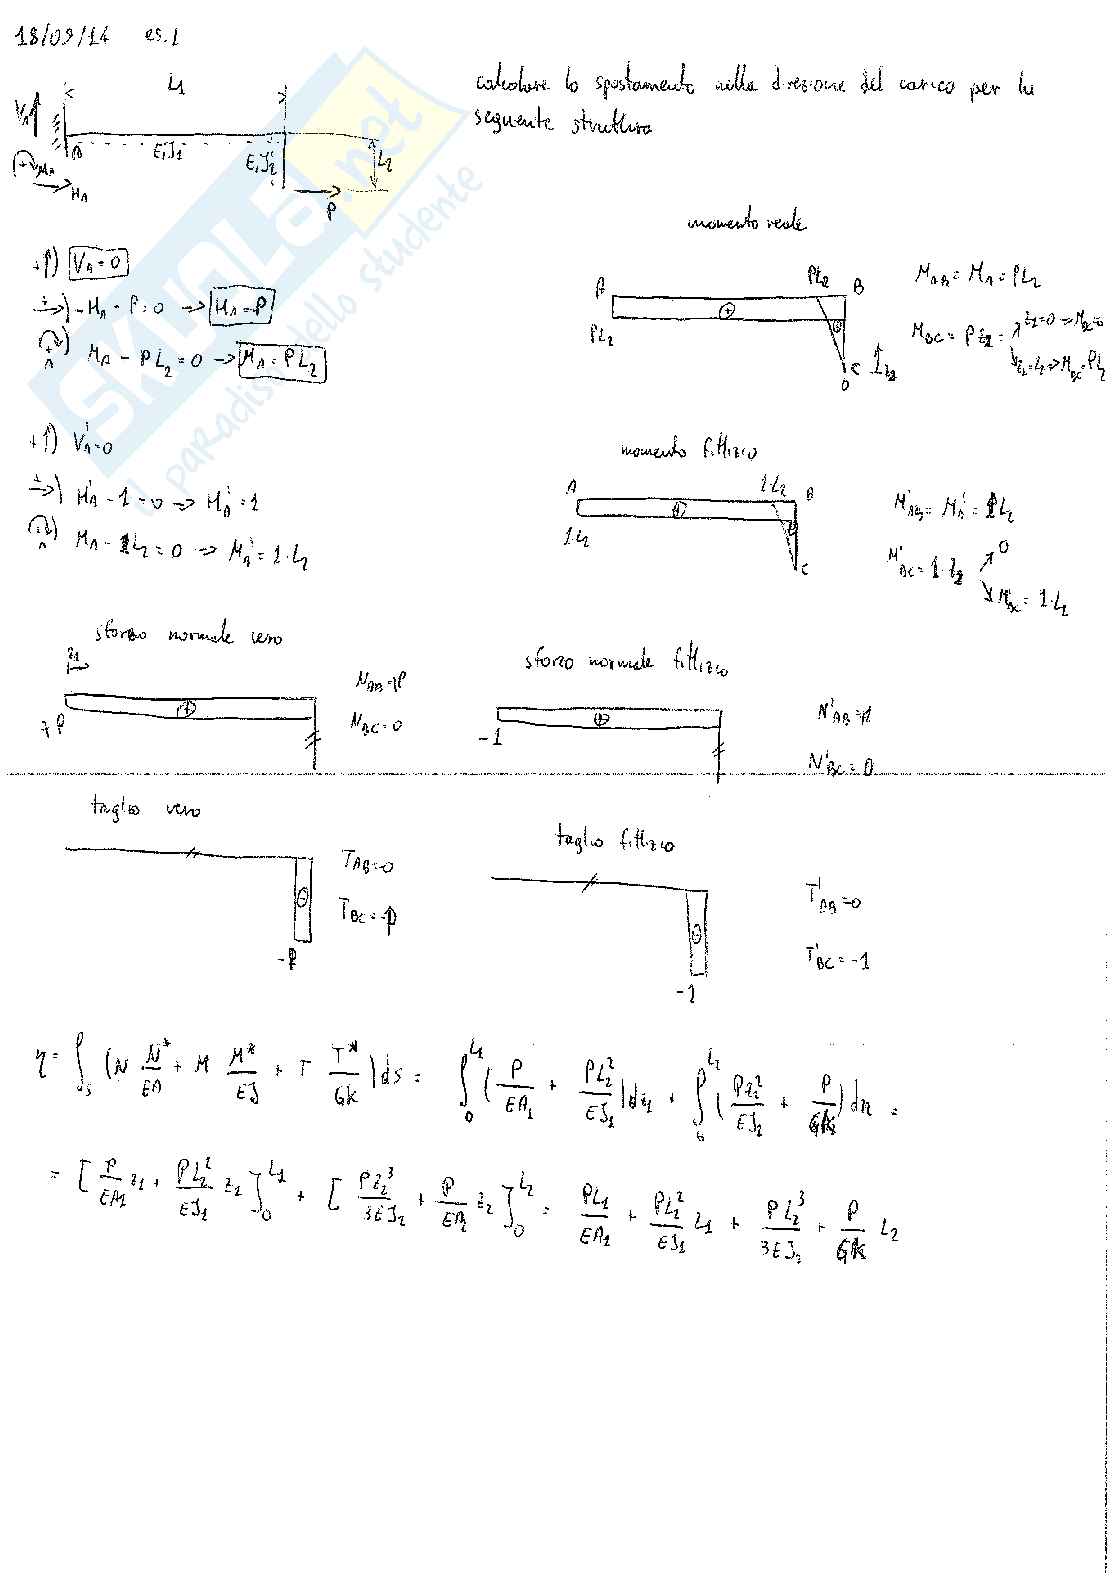 18/09/14 es.1
calcolare lo spostamento nella direzione del carico per la
seguente struttura
L1
VA
A E,J1 E,J2 L2
MA
HA
P
SKUOLA.net
il paradiso dello studente
momento reale
+↑) VA=0
→) -HA - P=0 → HA=-P
A) MA - PL2=0 → MA=PL2
A PL2 B
PL2
C
0
z2
MAB= MA= PL2
MBC= Pz2
z2=0 → MBC=0
z2=L2 → MBC=PL2
momento fittizio
+↑) V'A=0
→) H'A - 1=0 → H'A=1
A) MA - 1L2=0 → M'A=1·L2
A 1·L2 B
1·L2
C
M'AB= M'A= 1L2
M'BC=1·z2
0
M'BC= 1·L2
sforzo normale vero
z1
+P
NAB=P
NBC=0
sforzo normale fittizio
-1
N'AB=1
N'BC=0
taglio vero
TAB=0
TBC=-P
-P
taglio fittizio
T'AB=0
T'BC=-1
-1
η= ∫s (N N*/EA + M M*/EJ + T T*/GK) ds = ∫0^L1 (P/EA1 + PL2²/EJ1) dz1 + ∫0^L2 (Pz2²/EJ2 + P/GK) dz =
= [P/EA1 z1 + PL2²/EJ1 z2]0^L1 + [Pz2³/3EJ2 + P/EA2 z2]0^L2 = PL1/EA1 + PL2²/EJ1 L1 + PL2³/3EJ2 + P/GK L2